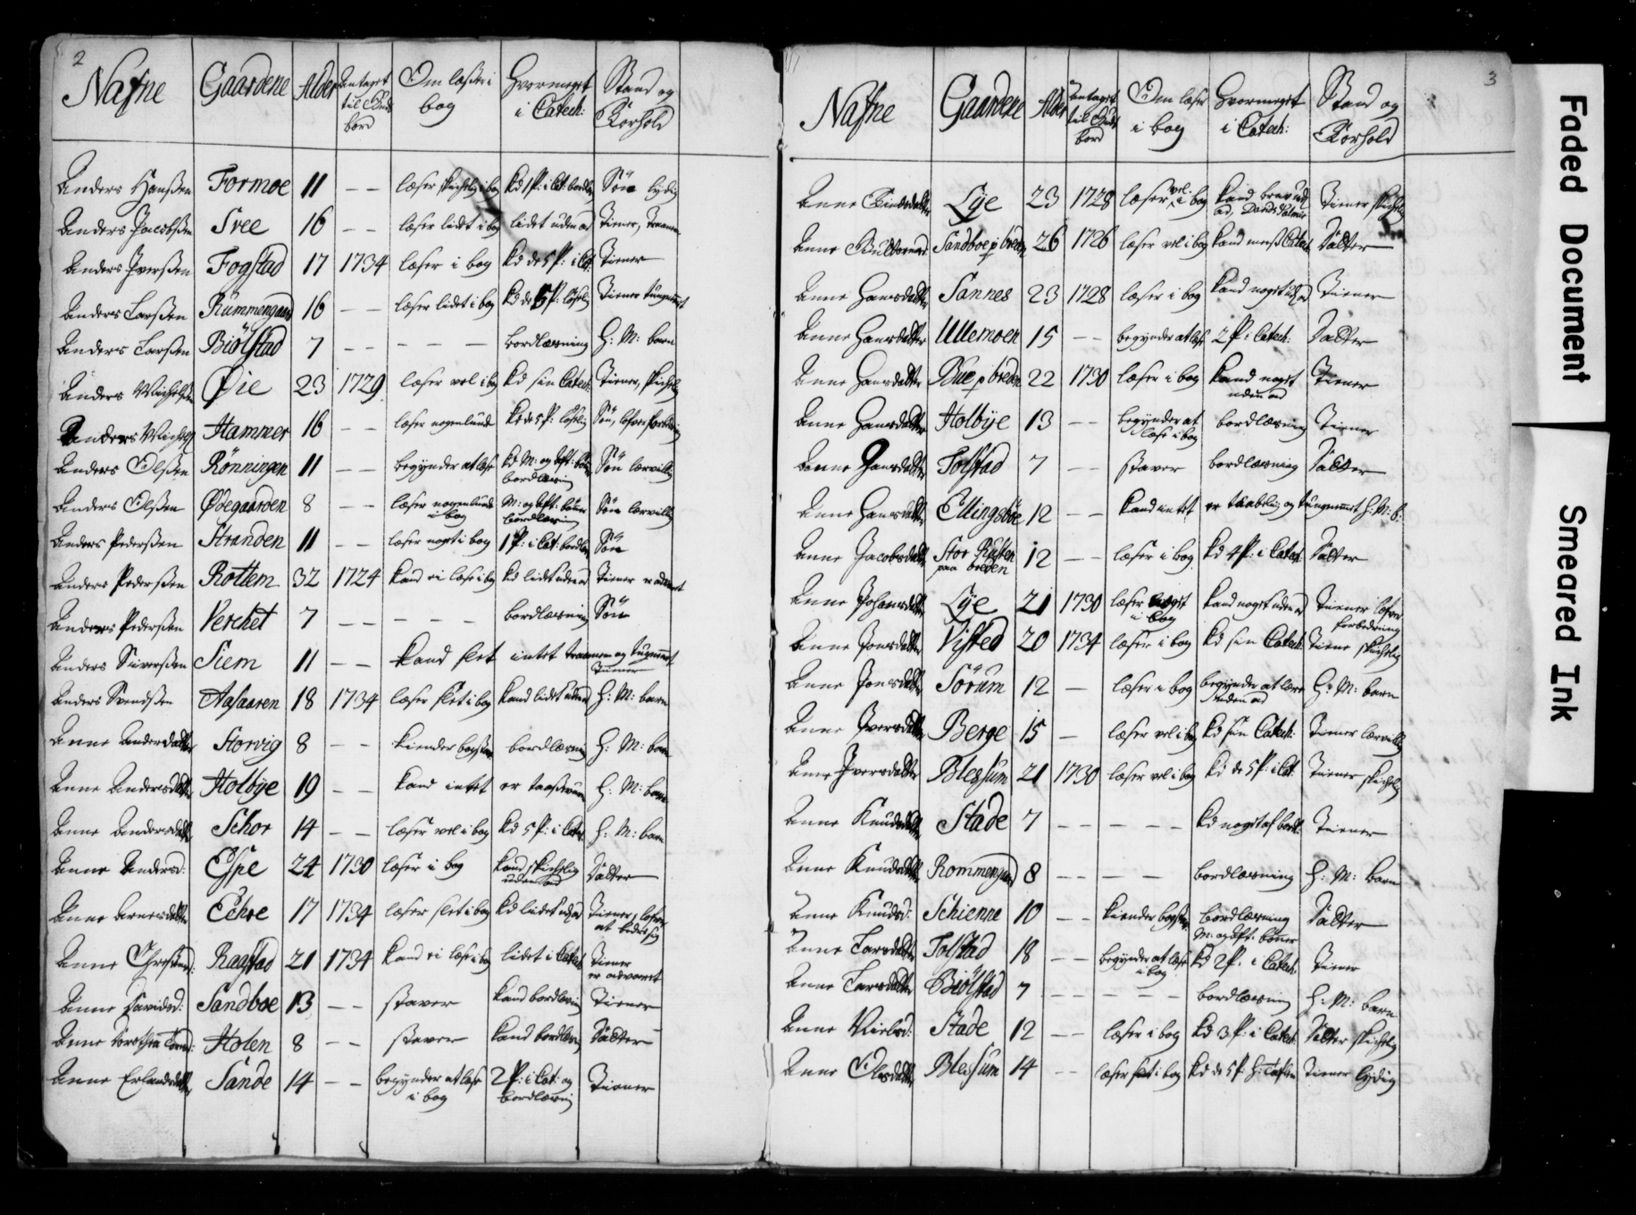 2
Nafne Gaardene Alder Antaget til Guds bord Om læser i bog Hvormeget i Catech: Stand og Forhold
Anders Hanßen Formoe 11 -- læser skichelig i bog kd 1 P: i Cat: bordlæsn Søn lydig
Anders Jacobßen Svee 16 -- læser lidet i bog lidet uden ad Tiener,
Anders Iverßen Fogstad 17 1734 læser i bog kd de 5 P: i Cat: Tiener
Anders Larßen Rümmengaard 16 -- læser lidet i bog kd de 5 P: Tiener tungnemt
Anders Larßen Biölstad 7 -- -- bordlæsning H: M: barn
Anders Øie 23 1729 læser vel i bog kd sin Catech: Tiener, skichelig
Anders Hammer 16 -- læser nogenlunde kd de 5 P: Søn,
Anders Olßen Rönningen 11 -- begynder at læse kd M: og Aft: bønner bordlæsn Søn lærvillig
Anders Olßen Ødegaarden 8 -- læser nogenlunde i bog M: og Aft: bønner bordlæsn Søn lærvillig
Anders Pederßen Stranden 11 -- læser noget i bog 1 P: i Cat: bordlæsn Søn
Anders Pederßen Rottem 32 1724 kand ei læse i bog kd lidt uden ad Tiener er advaret
Anders Pederßen Verchet 7 -- -- bordlæsning Søn
Anders Siverßen Siem 11 -- kand slet intet og tungnemt Tiener
Anders Svendßen Aasaaren 18 1734 læser slet i bog kand lidet uden ad H: M: barn
Anne Andersdatter Storvig 8 -- kiender bogstav bordlæsning H: M: barn
Anne Andersdatter Holbye 19 -- kand intet er H: M: barn
Anne Andersdatter Schor 14 -- læser vel i bog kd 5 P: i Catech H: M: barn
Anne Andersd: Espe 24 1730 læser i bog kand skichelig uden ad Datter
Anne Arnesdatter Echre 17 1734 læser slet i bog kd lidet uden ad Tiener, lofver at bedre sig
Anne Raastad 21 1734 kand ei læse i bog lidet i Catech Tiener er advaret
Anne Davidsd: Sandboe 13 -- staver kand bordlæsn Tiener
Anne Dorothea Holen 8 -- staver kand bordlæsn Datter
Anne Erlandsdatter Sande 14 -- begynder at læse i bog 2 P: i Cat: og bordlæsning Tiener
3
Nafne Gaardene Alder Antaget til Guds bord Om læser i bog Hvormeget i Catech: Stand og Forhold
Anne Lye 23 1728 læser vel i bog kand brav uden ad, Davids Psalmer Tiener skichelig
Anne Sandboe p breden 26 1726 læser vel i bog kand mest Catech Datter
Anne Hansdatter Sannes 23 1728 læser i bog kand noget uden ad Tiener
Anne Hansdatter Ullemoen 15 -- begynder at læse 2 P: i Catech: Datter
Anne Hansdatter Bue p breden 22 1730 læser i bog kand noget uden ad Tiener
Anne Hansdatter Holbye 13 -- begynder at læse i bog bordlæsning Tiener
Anne Hansdatter Tolstad 7 -- staver bordlæsning Datter
Anne Hansdatter Ellingsböe 12 -- kand intet er taabelig og tungnemt H: M: b:
Anne Jacobsdatter Stor paa breden 12 -- læser i bog kd 4 P: i Catech Datter
Anne Johansdatter Lye 21 1730 læser noget i bog kand noget uden ad Tiener lofver forbedring
Anne Jonsdatter Visted 20 1734 læser i bog kd sin Catech: Tiener skichelig
Anne Jonsdatter Sörum 12 - læser i bog begynder at lære uden ad H: M: barn
Anne Iversdatter Berge 15 - læser vel i bog kd sin Catech: Tiener lærvillig
Anne Iversdatter Blessum 21 1730 læser vel i bog kd de 5 P: i Cat: Tiener skichelig
Anne Knudsdatter Stade 7 -- -- kd noget af bordl: Tiener
Anne Knudsdatter Rommengaard 8 -- -- bordlæsning H: M: barn
Anne Knudsd: Schienne 10 -- kiender bogstav bordlæsning M: og Aft: bønner Datter
Anne Larsdatter Tolstad 18 -- begynder at læse i bog kd 2 P: i Catech: Tiener
Anne Larsdatter Biölstad 7 -- -- bordlæsning H: M: barn
Anne Nielsd: Stade 12 -- læser i bog kd 3 P: i Catech: Datter skichelig
Anne Olesdatter Blessum 14 -- læser slet i bog kd de 5 P: Tiener lydig
Faded Document
Smeared Ink